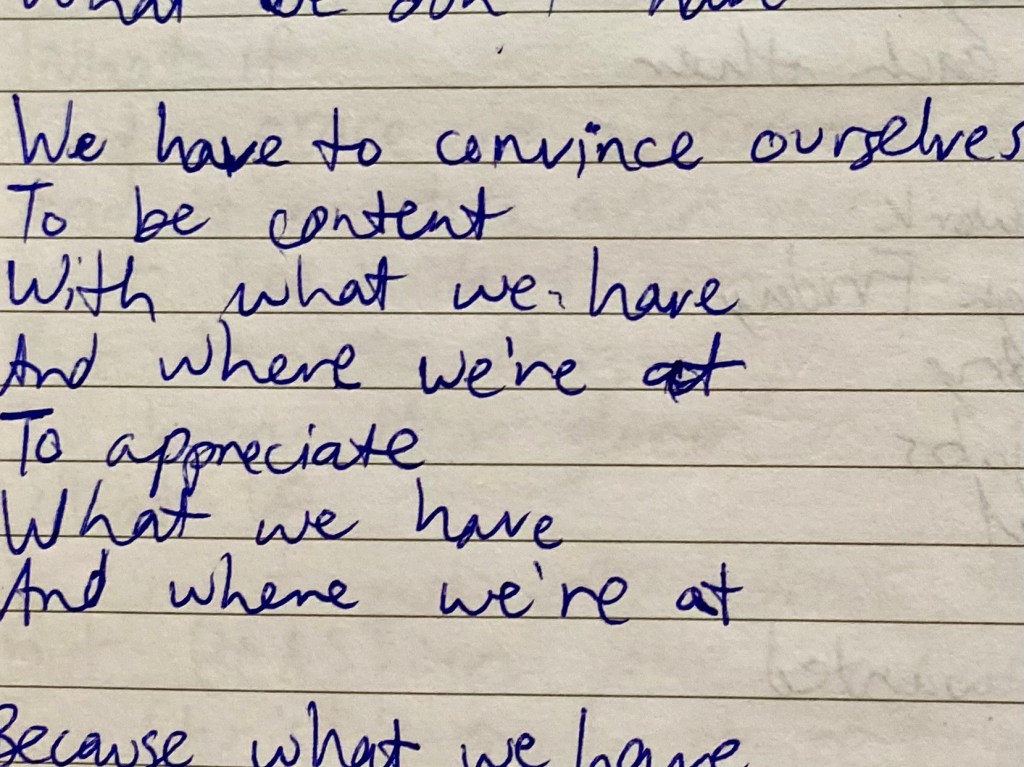 What we don't have
We have to convince ourselves
To be content
With what we have
And where we're at
To appreciate
What we have
And where we're at
Because what we have